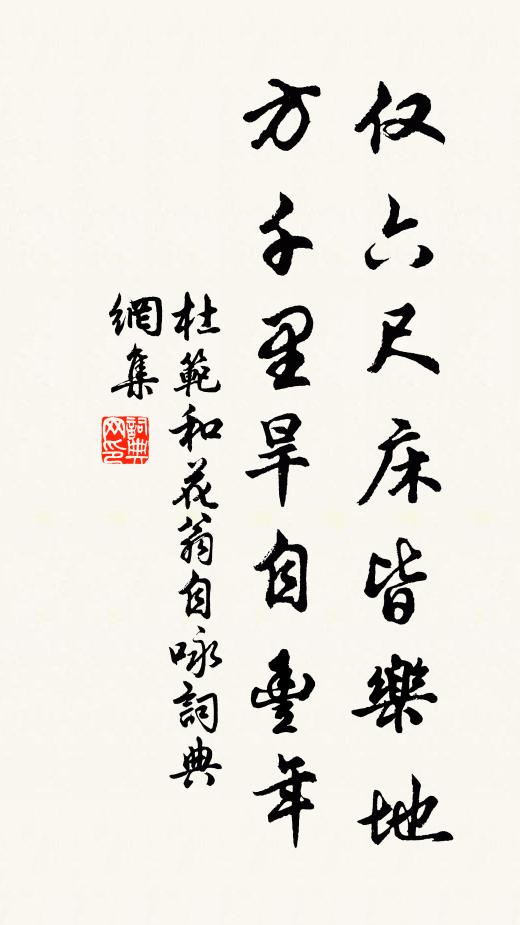 仅六尺床皆樂地
方千里旱自豐年
杜範和花翁自咏詞典
網集
詞典
网印